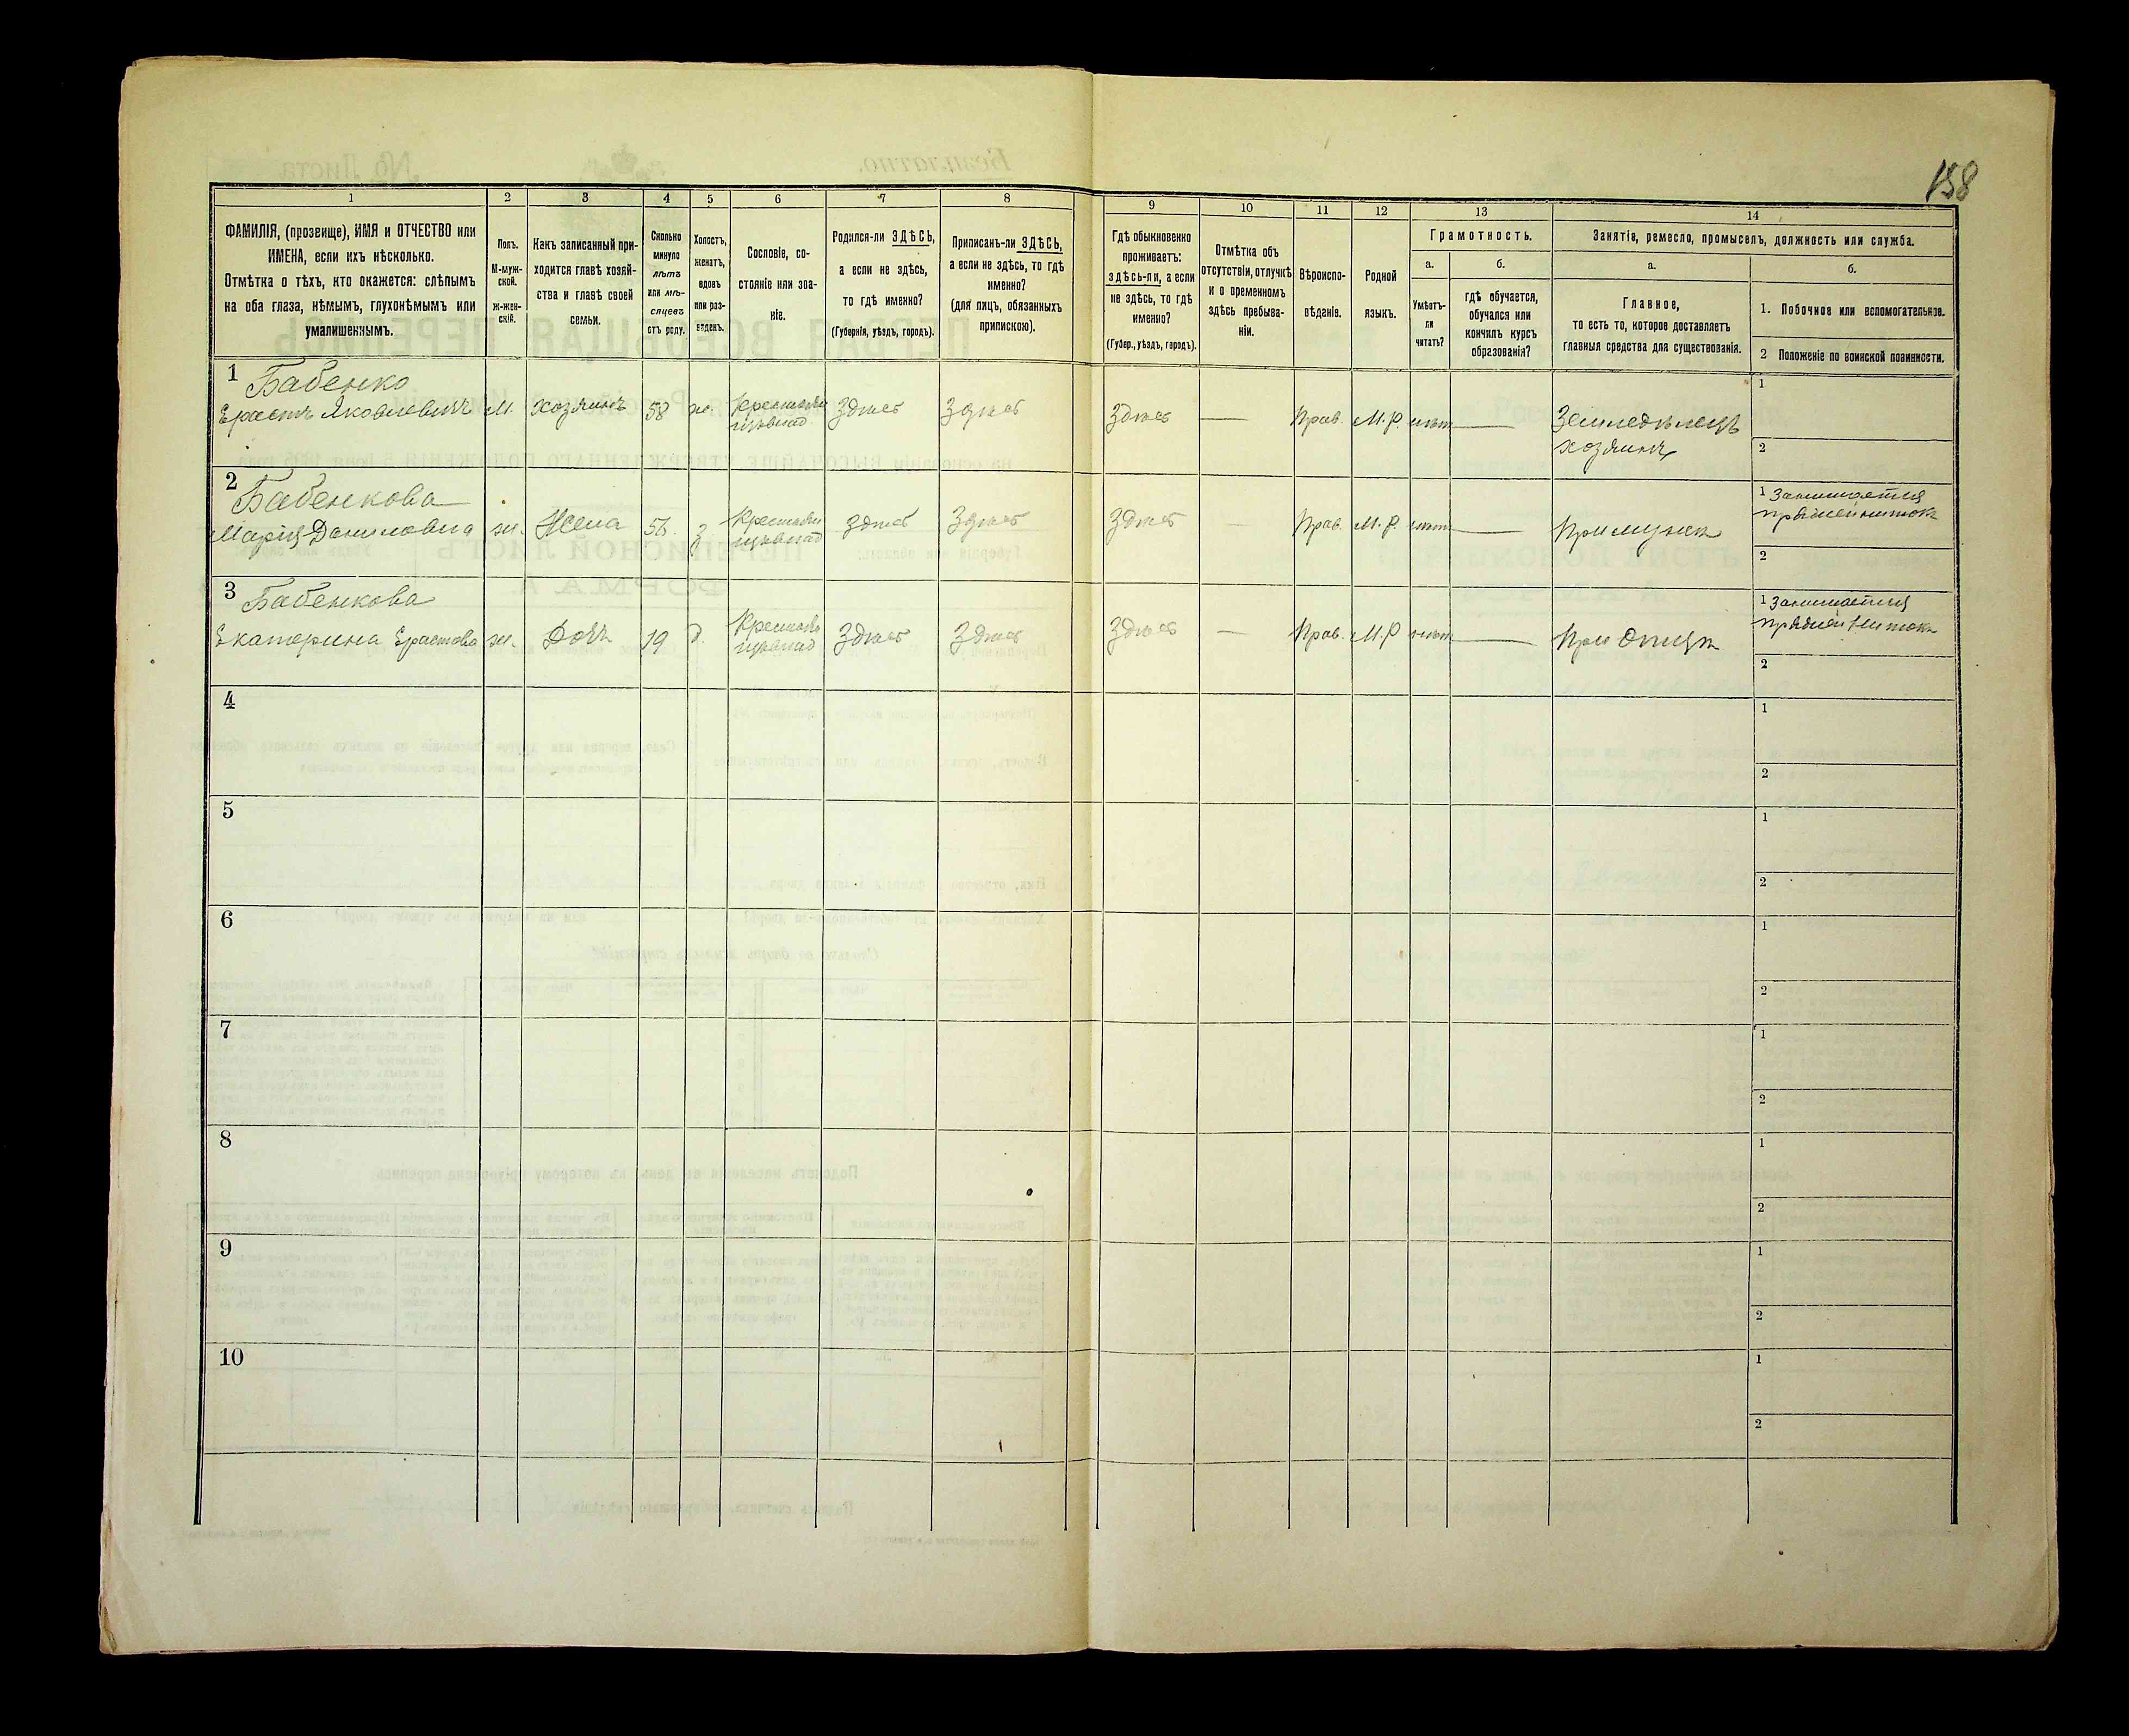 158
1
2
3
4
5
6
7
8
9
10
11
12
13
14
ФАМИЛІЯ, (прозвище), ИМЯ и ОТЧЕСТВО или
ИМЕНА, если ихъ нѣсколько.
Отмѣтка о тѣхъ, кто окажется: слѣпымъ
на оба глаза, нѣмымъ, глухонѣмымъ или
умалишеннымъ.
Полъ.
М-муж-
ской.
ж-жен-
скій.
Какъ записанный при-
ходится главѣ хозяй-
ства и главѣ своей
семьи.
Сколько
минуло
лѣтъ
или мѣ-
сяцевъ
отъ роду.
Холостъ,
женатъ,
вдовъ
или раз-
веденъ.
Сословіе, со-
стояніе или зва-
ніе.
Родился-ли ЗДѢСЬ,
а если не здѣсь,
то гдѣ именно?
(Губернія, уѣздъ, городъ).
Приписанъ-ли ЗДѢСЬ,
а если не здѣсь, то гдѣ
именно?
(для лицъ, обязанныхъ
припискою).
Гдѣ обыкновенно
проживаетъ:
здѣсь-ли, а если
не здѣсь, то гдѣ
именно?
(Губер., уѣздъ, городъ).
Отмѣтка объ
отсутствіи, отлучкѣ
и о временномъ
здѣсь пребыва-
ніи.
Вѣроиспо-
вѣданіе.
Родной
языкъ.
Грамотность.
а.
Умѣетъ-
ли
читать?
б.
гдѣ обучается,
обучался или
кончилъ курсъ
образованія?
Занятіе, ремесло, промыселъ, должность или служба.
а.
Главное,
то есть то, которое доставляетъ
главныя средства для существованія.
б.
1. Побочное или вспомогательное.
2 Положеніе по воинской повинности.
1 Бабенко
Ерастъ Яковлевичъ М. хозяинъ 58 ж. Здѣсь Здѣсь Здѣсь — Прав. М.Р. нѣтъ — Земледѣлецъ
хозяинъ
1
2
2 Бабенкова
Марія Даниловна ж. Жена 56. з Здѣсь Здѣсь Здѣсь — Прав. М.Р. нѣтъ — При мужѣ
1 Занимается
пряжей нитокъ
2
3 Бабенкова
Екатерина Ерастова ж. Дочь 19 д. Здѣсь Здѣсь Здѣсь — Прав. М.Р нѣтъ — При Отцѣ
1 Занимается
пряжей нитокъ
2
4
1
2
5
1
2
6
1
2
7
1
2
8
1
2
9
1
2
10
1
2